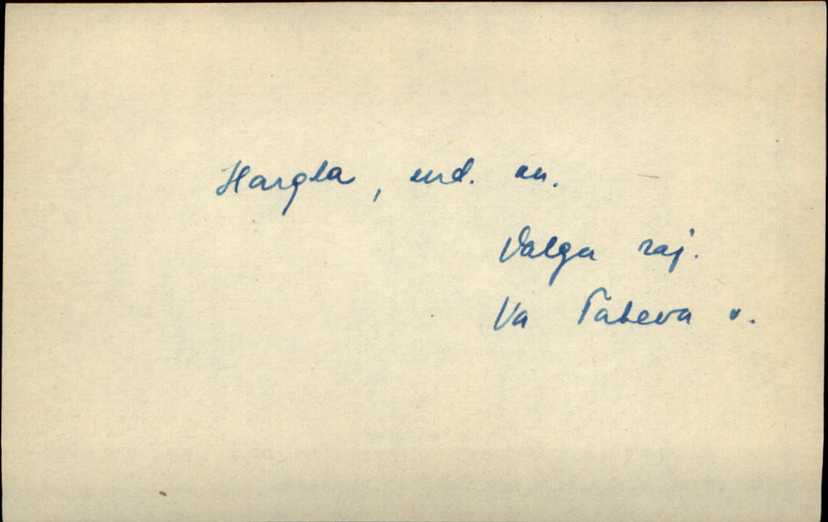 Hargla, end. as.
Valga raj.
Va Taheva v.